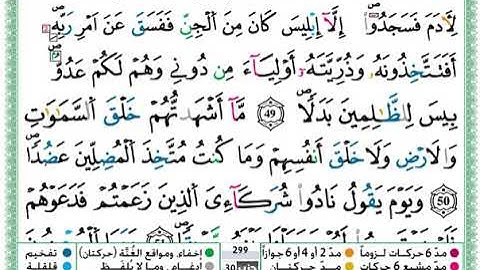 لِأَدَمَ فَسَجَدُوٓاْ إِلَّآ إِبْلِيسَ كَانَ مِنَ ٱلْجِنِّ فَفَسَقَ عَنْ أَمْرِ رَبِّهِۦٓ
أَفَتَتَّخِذُونَهُۥ وَذُرِّيَّتَهُۥٓ أَوْلِيَآءَ مِن دُونِي وَهُمْ لَكُمْ عَدُوُّۢ
بِيسَ لِلظَّٰلِمِينَ بَدَلًا 49 مَّآ أَشْهَدتُّهُمْ خَلْقَ ٱلسَّمَٰوَٰتِ
وَٱلَارْضِ وَلَا خَلْقَ أَنفُسِهِمْ وَمَا كُنتُ مُتَّخِذَ ٱلْمُضِلِّينَ عَضُدًا
50 وَيَوْمَ يَقُولُ نَادُواْ شُرَكَآءِيَ ٱلَّذِينَ زَعَمْتُمْ فَدَعَوْهُمْ
مدّ 6 حركات لزوماً مدّ 2 أو 4 أو 6 جوازاً 299 إخفاء، ومواقع الغُنَّة (حركتان) تفخيم
مدّ مشبع 6 حركات مدّ حركتان 30 إدغام، وما لا يُلفظ قلقلة